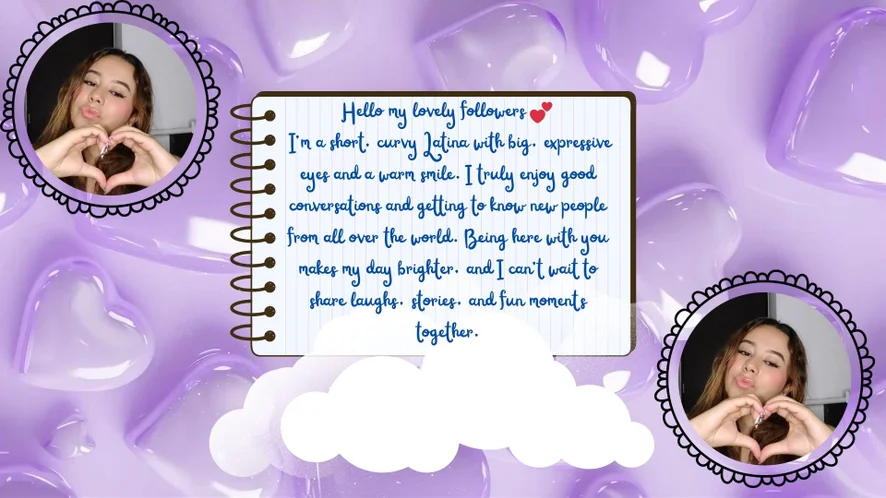 Hello my lovely followers 💕
I'm a short, curvy Latina with big, expressive
eyes and a warm smile. I truly enjoy good
conversations and getting to know new people
from all over the world. Being here with you
makes my day brighter, and I can't wait to
share laughs, stories, and fun moments
together.